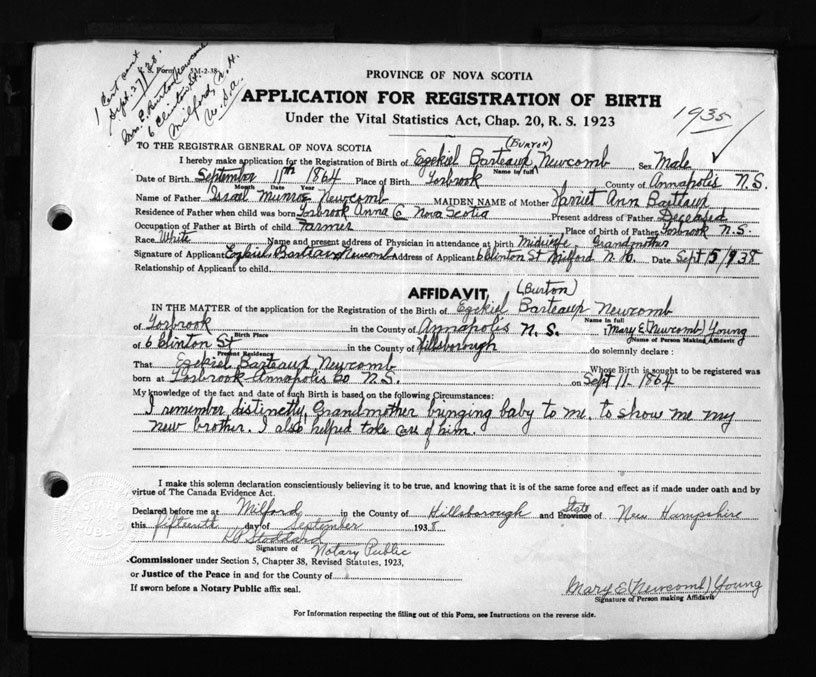 1 Cert sent
Sept. 27/38.
V. S. Form 5M-2-38
6 Clinton St.
Milford, N. H.
U. S. A.
PROVINCE OF NOVA SCOTIA
APPLICATION FOR REGISTRATION OF BIRTH
Under the Vital Statistics Act, Chap. 20, R. S. 1923
1935
TO THE REGISTRAR GENERAL OF NOVA SCOTIA
(BURTON)
I hereby make application for the Registration of Birth of Ezekiel Barteaux Newcomb Sex Male
Name in full
Date of Birth September 11th 1864 Place of Birth Torbrook County of Annapolis N.S.
Month Date Year
Name of Father Israel Munroe Newcomb MAIDEN NAME of Mother Harriet Ann Barteaux
Residence of Father when child was born Torbrook Anna Co Nova Scotia Present address of Father Deceased
Occupation of Father at Birth of child Farmer Place of Birth of Father Torbrook N.S.
Race White Name and present address of Physician in attendance at birth Midwife, Grandmother
Signature of Applicant Ezekiel Barteaux Newcomb Address of Applicant 6 Clinton St Milford N. H. Date Sept 15/1938
Relationship of Applicant to child
AFFIDAVIT
(Burton)
IN THE MATTER of the application for the Registration of the Birth of Ezekiel Barteaux Newcomb
Name in full
of Torbrook in the County of Annapolis N. S. Mary E (Newcomb) Young
Birth Place Name of Person Making Affidavit
of 6 Clinton St in the County of Hillsborough do solemnly declare :
Present Residence
That Ezekiel Barteaux Newcomb Whose Birth is sought to be registered was
born at Torbrook Annapolis Co N.S. on Sept 11 - 1864
My knowledge of the fact and date of such Birth is based on the following Circumstances:
I remember distinctly, Grandmother bringing baby to me, to show me my
new brother. I also helped take care of him.
I make this solemn declaration conscientiously believing it to be true, and knowing that it is of the same force and effect as if made under oath and by
virtue of The Canada Evidence Act.
Declared before me at Milford in the County of Hillsborough and State Province of New Hampshire
this fifteenth day of September 1938
Stoddard
Signature of Notary Public
Commissioner under Section 5, Chapter 38, Revised Statutes, 1923,
or Justice of the Peace in and for the County of
If sworn before a Notary Public affix seal.
Mary E (Newcomb) Young
Signature of Person making Affidavit
For Information respecting the filling out of this Form, see Instructions on the reverse side.